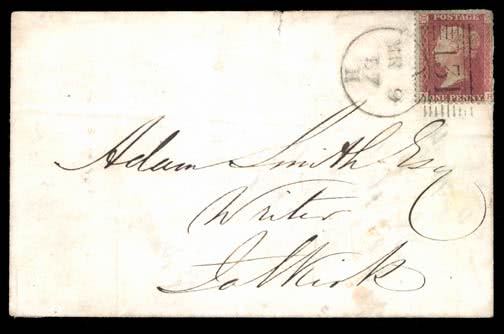 POSTAGE
ONE PENNY
H
MR 9
57
Adam Smith Esq
Writer
Falkirk